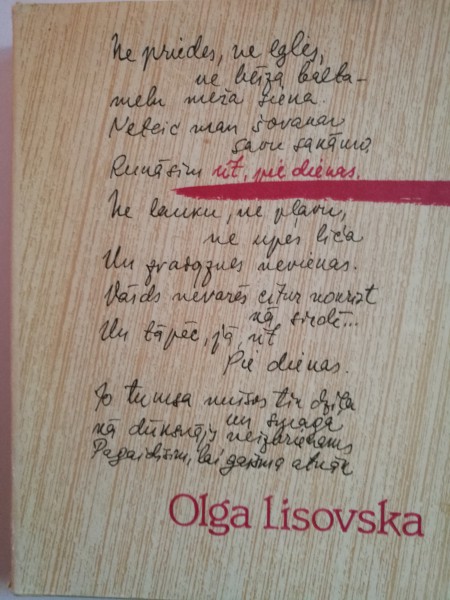 Ne priedes, ne egles,
ne bieza balta-
melu meža siena.
Neteic man šovakar
savu sakāmo,
Runāsim rīt, pie dienas.
Ne lauku, ne pļavu,
ne upes līča
Un zvaigznes nevienas.
Vārds nevarēs citur nokrist
kā sirdī...
Un tāpēc, jā, rīt
Pie dienas.
Jo tumsa mūsos tik dziļa
un smaga
kā dūksnājs neizbrienams
Pagaidīsim, lai gaisma atnāk
Olga Lisovska